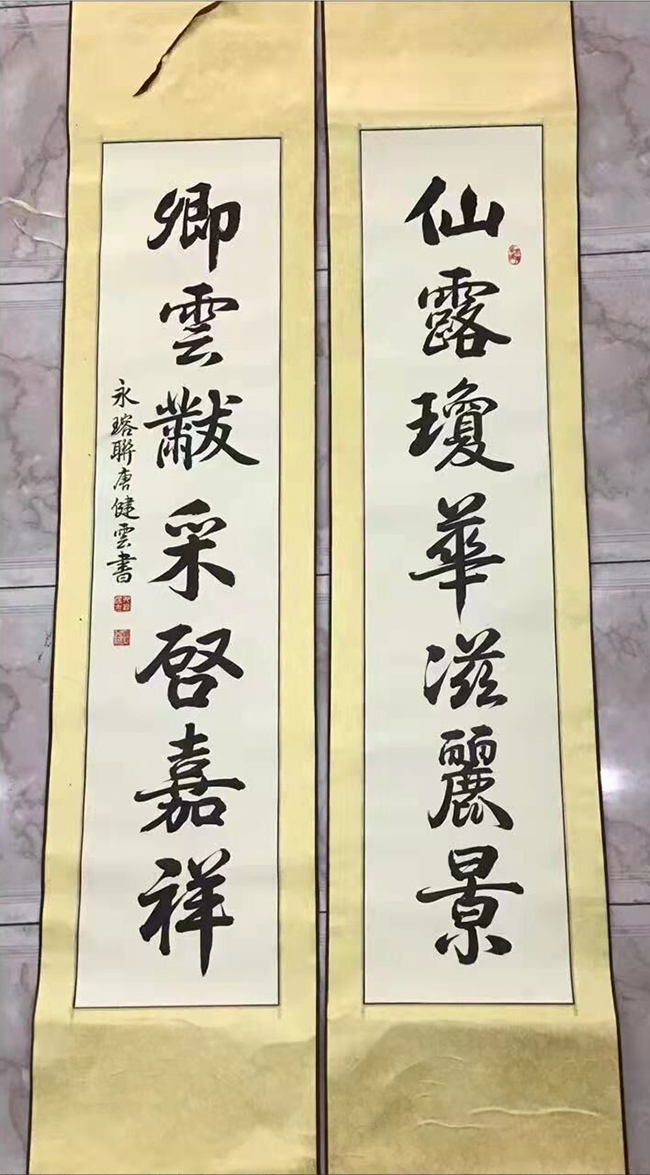 仙露瓊華滋麗景
卿雲黻采啓嘉祥
永瑢聯唐健雲書